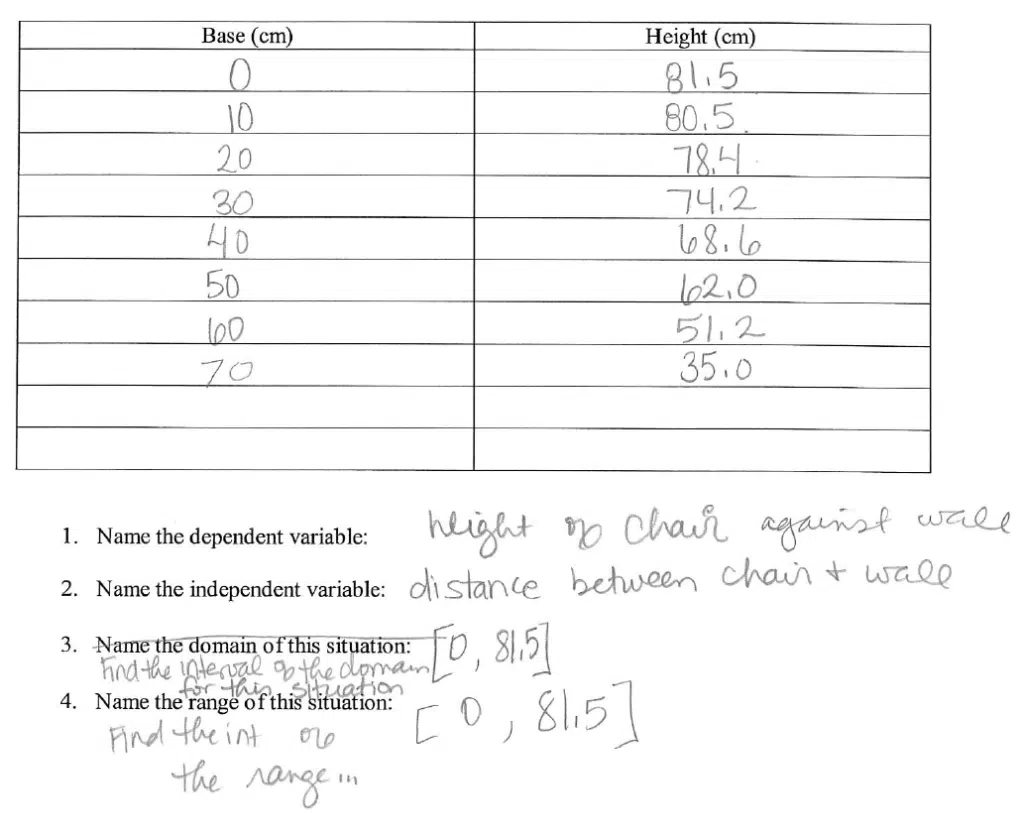 Base (cm) Height (cm)
0 81.5
10 80.5
20 78.4
30 74.2
40 68.6
50 62.0
60 51.2
70 35.0
1. Name the dependent variable: height of chair against wall
2. Name the independent variable: distance between chair + wall
3. Name the domain of this situation: [0, 81.5]
Find the interval of the domain
for this situation
4. Name the range of this situation: [0, 81.5]
Find the int of
the range ...